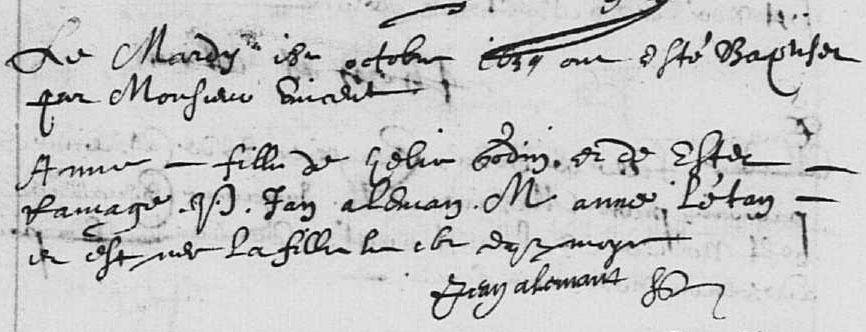 Le Mardy 18e octobre 1639 ont esté Baptisez
par Monsieur Vincent
Anne — fille de Helie Bodin. et de Ester —
Ramage. P. Jan aleman. M. anne Létan —
et est nee la fille le du moys
Jean alemant